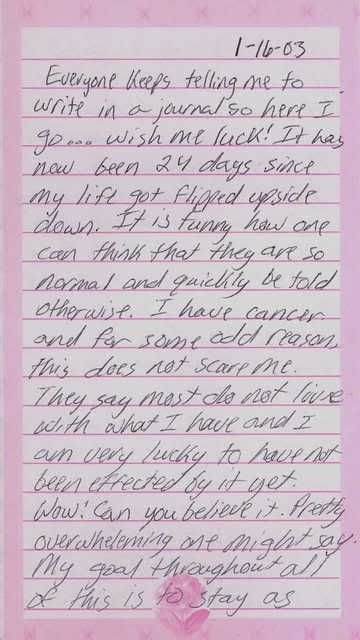 1-16-03
Everyone keeps telling me to
write in a journal so here I
go... wish me luck! It has
now been 24 days since
my life got flipped upside
down. It is funny how one
can think that they are so
normal and quickly be told
otherwise. I have cancer
and for some odd reason,
this does not scare me.
They say most do not live
with what I have and I
am very lucky to have not
been effected by it yet.
Wow! Can you believe it. Pretty
overwhelming one might say.
My goal throughout all
of this is to stay as